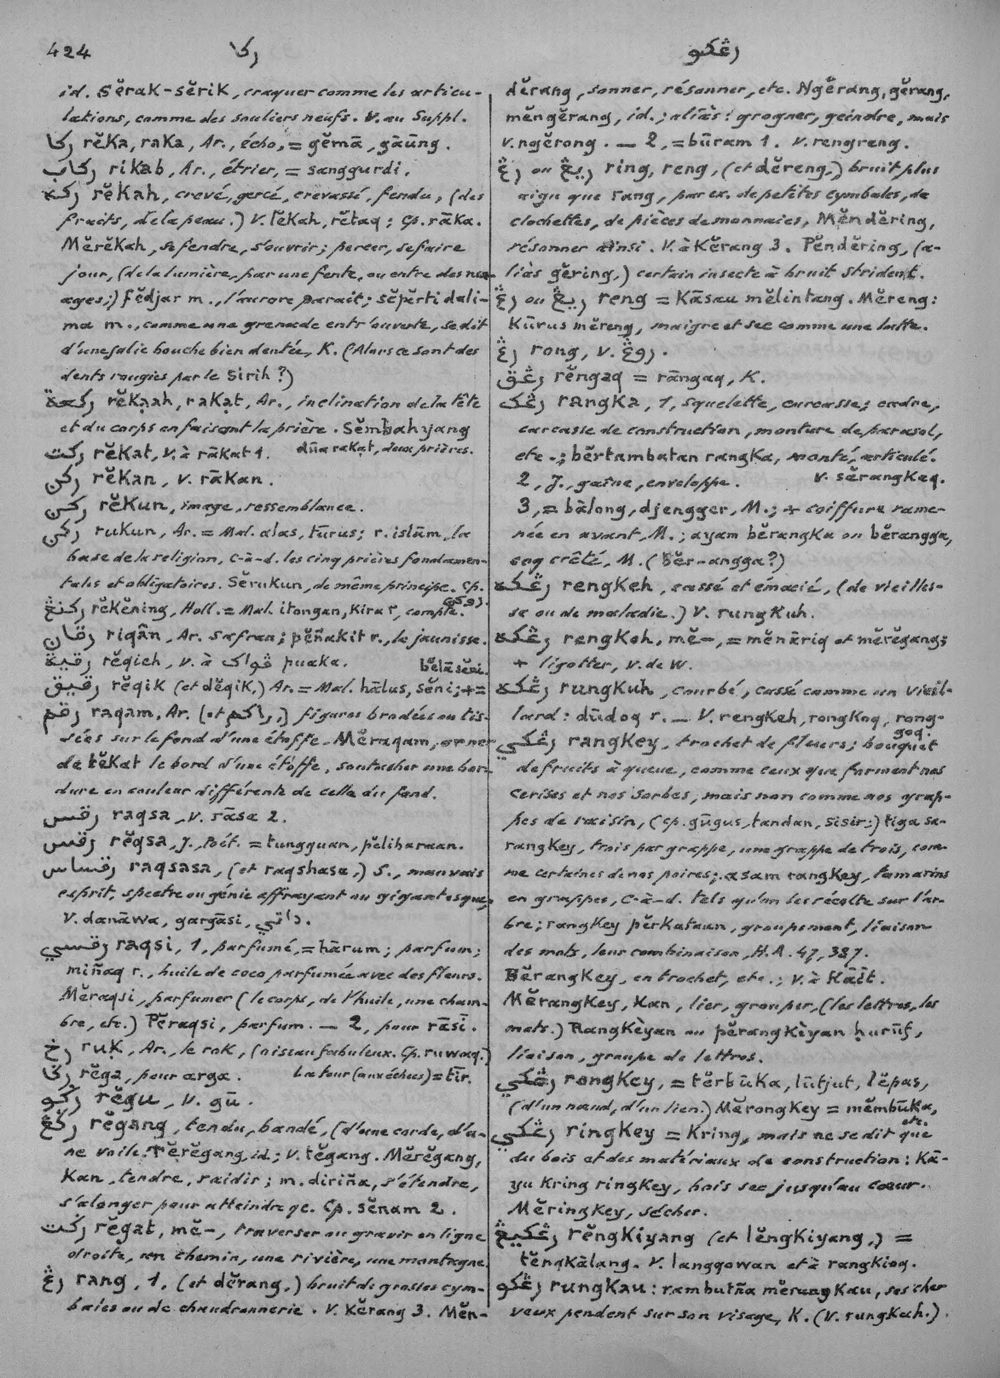 424
رکا
رڠکو
id. sĕrak-sĕrik, craquer comme les articu-
lations, comme des souliers neufs. V. au Suppl.
رکا rĕka, raka, Ar., écho, = gĕmā, gāūng.
رکاب rikab, Ar., étrier, = sanggurdi.
رکه rĕkah, crevé, gercé, crevassé, fendu, (des
fruits, de la peau.) V. lĕkah, rĕtaq; Cp. rāka.
Mĕrĕkah, se fendre, s'ouvrir; percer, se faire
jour, (de la lumière, par une fente, ou entre des nu-
ages;) fĕdjar m., l'aurore parait; sĕpĕrti dali-
ma m., comme une grenade entr'ouverte, se dit
d'une jolie bouche bien dentée, K. (Alors ce sont des
dents rougies par le sirih?)
رکعة rĕkạah, rakạt, Ar., inclination de la tête
et du corps en faisant la prière. Sĕmbahyang
dūa rakat, deux prières.
رکت rĕkat, v. à rākat 1.
رکن rĕkan, v. rākan.
رکن rĕkun, image, ressemblance.
رکن rukun, Ar. = Mal. alas, tūrus; r. islām, la
base de la religion, c-à-d. les cinq prières fondamen-
tales et obligatoires. Sĕrukun, de même principe. Cp.
رکنڠ rĕkĕning, Holl. = Mal. itongan, kira r, compte.
رقان riqân, Ar. safran; pĕñakit r., la jaunisse.
رقية rĕqieh, v. à ڤواک puaka.
bĕlāsĕni.
رقيق rĕqik (et dĕqik,) Ar. = Mal. hālus, sĕni; +=
رقم raqam, Ar. (et راکم,) figures brodées ou tis-
sées sur le fond d'une étoffe. Mĕraqam, orner
de tĕkat le bord d'une étoffe, soutacher une bor-
dure en couleur différente de celle du fond.
رقس raqsa, v. rāsa 2.
رقس rĕqsa, J., Poét. = tungguan, pĕliharaan.
رقساس raqsasa, (et raqshasa,) S., mauvais
esprit, spectre ou génie effrayant ou gigantesque,
V. danāwa, gargāsi, داتي.
رقسي raqsi, 1, parfumé, = hārum; parfum;
miñaq r., huile de coco parfumée avec des fleurs.
Mĕraqsi, parfumer (le corps, de l'huile, une cham-
bre, etc.) Pĕraqsi, parfum. — 2, pour rāsi.
رخ ruk, Ar., le rok, (oiseau fabuleux. Cp. ruwaq.)
La tour (aux échecs) = tīr.
رݢا rĕga, pour arga.
رݢو rĕgu, v. gū.
رݢڠ rĕgang, tendu, bandé, (d'une corde, d'u-
ne voile. Tĕrĕgang, id.; v. tĕgang. Mĕrĕgang,
kan, tendre, raidir; m. diriña, s'étendre,
s'alonger pour atteindre qc. Cp. sĕnam 2.
رݢت rĕgat, mĕ-, traverser ou gravir en ligne
droite, un chemin, une rivière, une montagne.
رڠ rang, 1, (et dĕrang,) bruit de grosses cym-
bales ou de chaudronnerie. V. Kĕrang 3. Mĕn-
dĕrang, sonner, résonner, etc. Ngĕrang, gĕrang,
mĕngĕrang, id.; aliàs: grogner, geindre, mais
v. ngĕrong. — 2, = būram 1. V. rengreng.
رڠ ou ريڠ ring, reng, (et dĕreng,) bruit plus
aigu que rang, par ex. de petites cymbales, de
clochettes, de pièces de monnaies, Mĕndĕring,
résonner ainsi. V. à Kĕrang 3. Pĕndĕring, (a-
liàs gĕring,) certain insecte à bruit strident.
رڠ ou ريڠ reng = Kāsau mĕlintang. Mĕreng:
Kūrus mĕreng, maigre et sec comme une latte.
رڠ rong, v. روڠ.
رڠق rĕngaq = rāngaq, K.
رڠک rangka, 1, squelette, carcasse; cadre,
carcasse de construction, monture de parasol,
etc.; bĕrtambatan rangka, monté, articulé.
v. sĕrangkeq.
2, J., gaîne, enveloppe.
3, = bālong, djengger, M.; + coiffure rame-
née en avant, M.; ayam bĕrangka ou bĕrangga,
coq crêté, M. (bĕr-angga?)
رڠکه rengkeh, cassé et émacié, (de vieilles-
se ou de maladie.) V. rungkuh.
رڠکه rengkoh, mĕ-, = mĕnāriq et mĕrĕgang;
+ ligotter, v. de W.
رڠکه rungkuh, courbé, cassé comme un vieil-
lard: dūdoq r. — V. rengkeh, rongkoq, rong-
goq.
رڠکي rangkey, trochet de fleurs; bouquet
de fruits à queue, comme ceux que forment nos
cerises et nos sorbes, mais non comme nos grap-
pes de raisin, (cp. gūgus, tandan, sisir;) tiga sa-
rangkey, trois par grappe, une grappe de trois, com-
me certaines de nos poires; asam rangkey, tamarins
en grappes, c-à-d. tels qu'on les récolte sur l'ar-
bre; rangkey pĕrkataun, groupement, liaison
des mots, leur combinaison, H.A. 47, 387.
Bĕrangkey, en trochet, etc.; v. à Kāit.
Mĕrangkey, kan, lier, grouper, (les lettres, les
mots.) Rangkĕyan ou pĕrangkĕyan ḥurūf,
liaison, groupe de lettres.
رڠکي rongkey, = tĕrbūka, lūtjut, lĕpas,
(d'un nœud, d'un lien.) Mĕrongkey = mĕmbūka,
etc.
رڠکي ringkey = Kring, mais ne se dit que
du bois et des matériaux de construction: Kā-
yu kring ringkey, bois sec jusqu'au cœur.
Mĕringkey, sécher.
رڠکيڠ rĕngkiyang (et lĕngkiyang,) =
tĕngkālang. V. langgowan et à rangkiog.
رڠکو rungkau: rambutña mĕrungkau, ses che
veux pendent sur son visage, K. (V. rungkuh.)